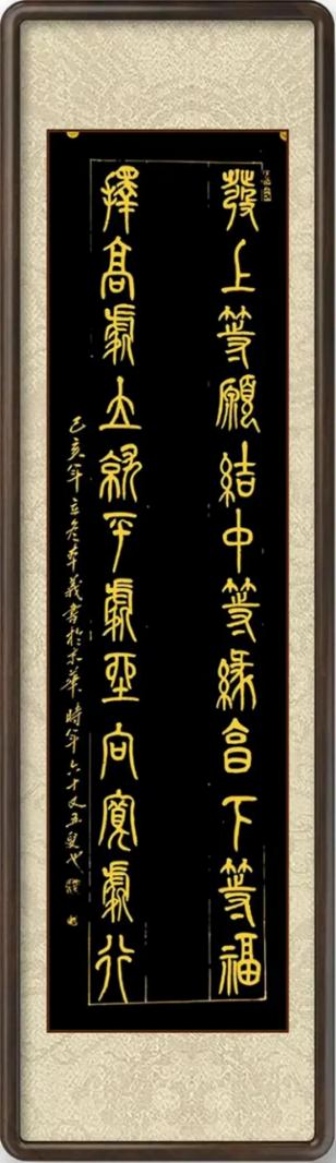 發上等願結中等緣享下等福
擇高處立就平處坐向寬處行
己亥年立冬李義書於京華時年六十又五叟也